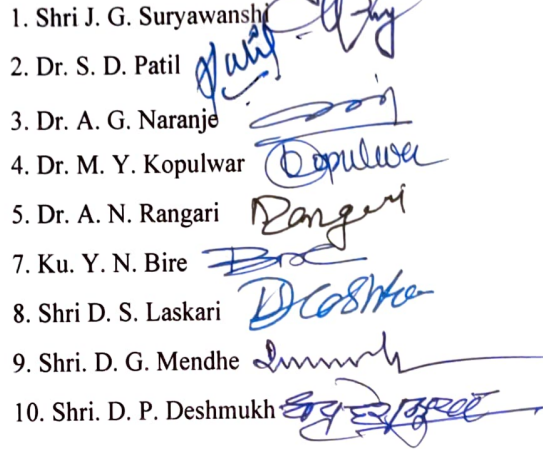 1. Shri J. G. Suryawanshi
2. Dr. S. D. Patil Patil
3. Dr. A. G. Naranje
4. Dr. M. Y. Kopulwar Kopulwar
5. Dr. A. N. Rangari Rangari
7. Ku. Y. N. Bire
8. Shri D. S. Laskari
9. Shri. D. G. Mendhe
10. Shri. D. P. Deshmukh